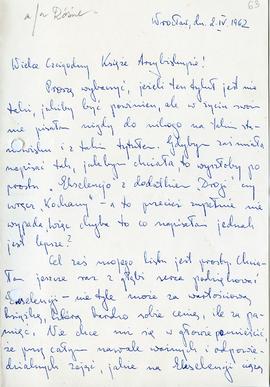 a/a Różne
63
Wrocław, dn. 2.IV.1962
Wielce Czcigodny Księże Arybiskupie!
Proszę wybaczyć, jeżeli ten tytuł jest nie
taki, jakiby być powinien, ale w życiu swoim
nie pisałam nigdy do nikogo na takim sta-
nowisku i z takim tytułem. Gdybym zaś miała
napisać tak, jakbym chciała, to wyszłoby po
prostu "Ekscelencjo z dodatkiem Drogi" czy
wręcz "Kochany" - a to przecież zupełnie nie
wypada, więc chyba to co napisałam jednak
jest lepsze?
Cel zaś mojego listu jest prosty. Chcia-
łam jeszcze raz z głębi serca podziękować
Ekscelencji - nie tyle może za wartościową
książkę, którą bardzo sobie cenię, ile za pa-
mięć. Nie chce mi się w głowie pomieścić
że przy całym nawale ważnych i odpowie-
dzialnych zajęć, jakie na Ekscelencji ciążą